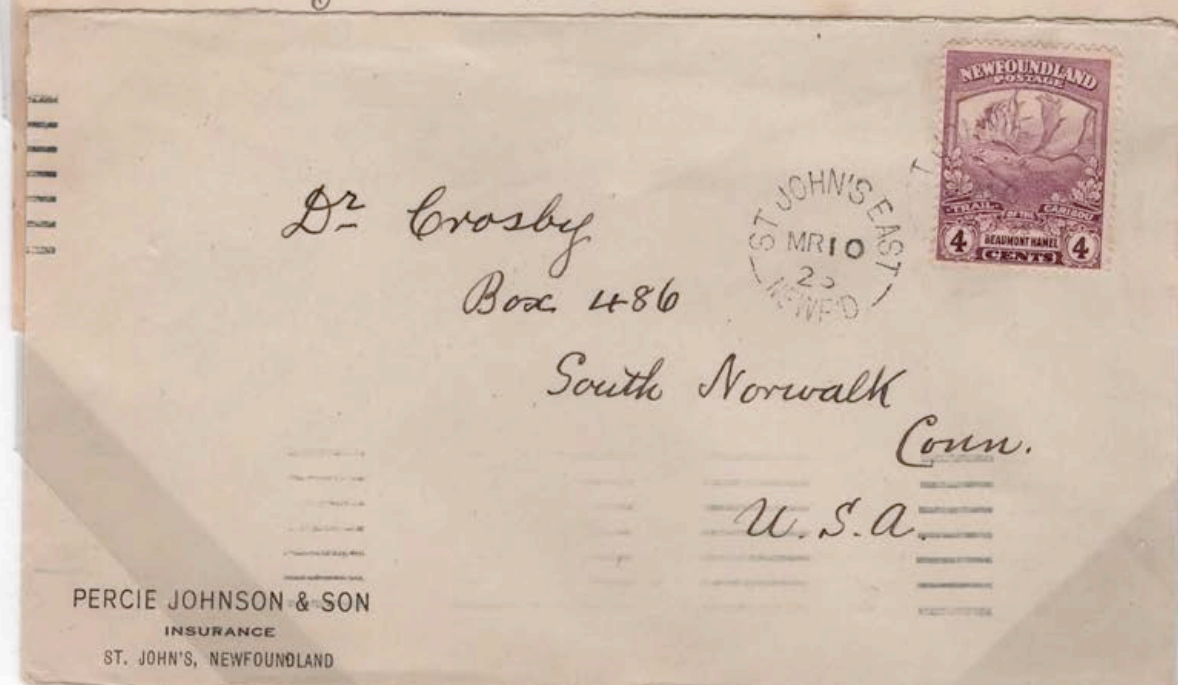 NEWFOUNDLAND
POSTAGE
TRAIL OF THE CARIBOU
4 BEAUMONT HAMEL 4
CENTS
ST JOHN'S EAST
MR 10
NEWF'D
Dr Crosby
Box 486
South Norwalk
Conn.
U.S.A.
PERCIE JOHNSON & SON
INSURANCE
ST. JOHN'S, NEWFOUNDLAND